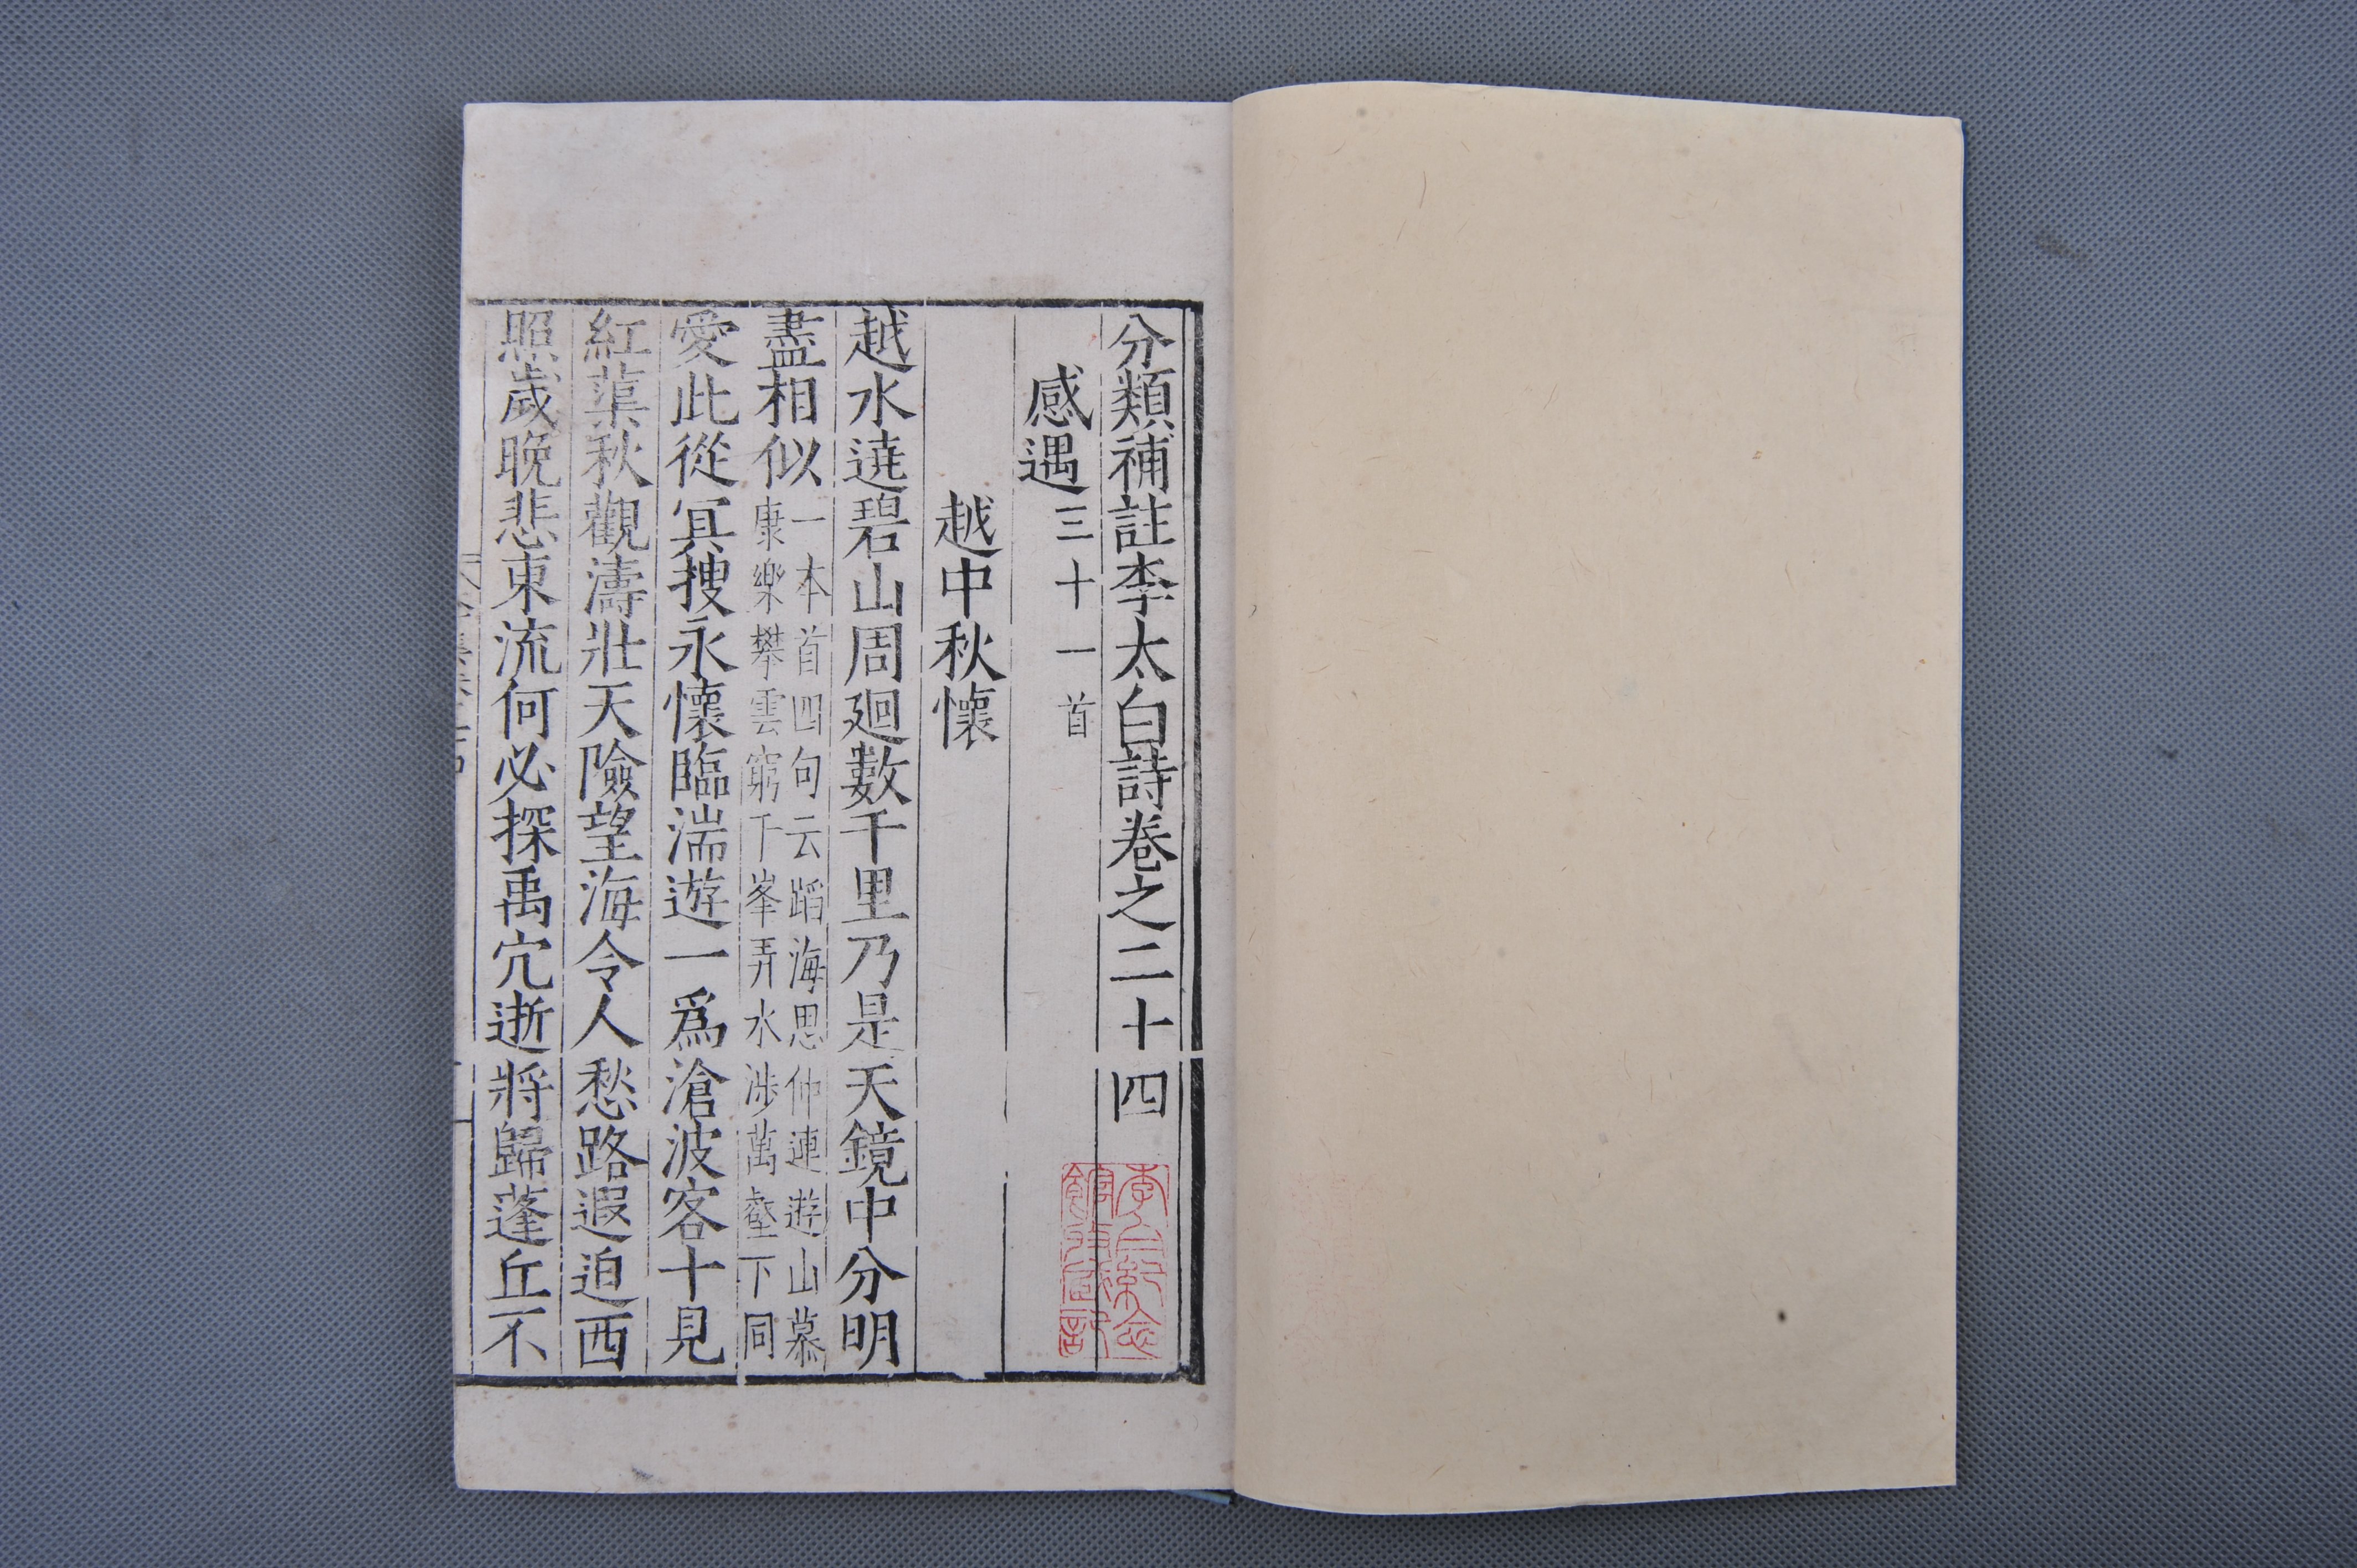 分類補註李太白詩卷之二十四
感遇三十一首
越中秋懷
越水遶碧山周廻數千里乃是天鏡中分明
盡相似一本首四句云蹈海思仲連遊山慕
康樂攀雲窮千峯弄水涉萬壑下同
愛此從冥搜永懷臨湍遊一爲滄波客十見
紅蕖秋觀濤壯天險望海令人愁路遐迫西
照歲晚悲東流何必探禹穴逝將歸蓬丘不
李白紀念館收藏印記